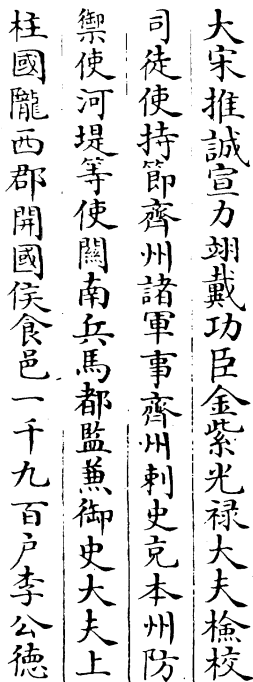 大宋推誠宣力翊戴功臣金紫光禄大夫檢校
司徒使持節齊州諸軍事齊州刺史充本州防
禦使河堤等使關南兵馬都監兼御史大夫上
柱國隴西郡開國侯食邑一千九百戶李公德